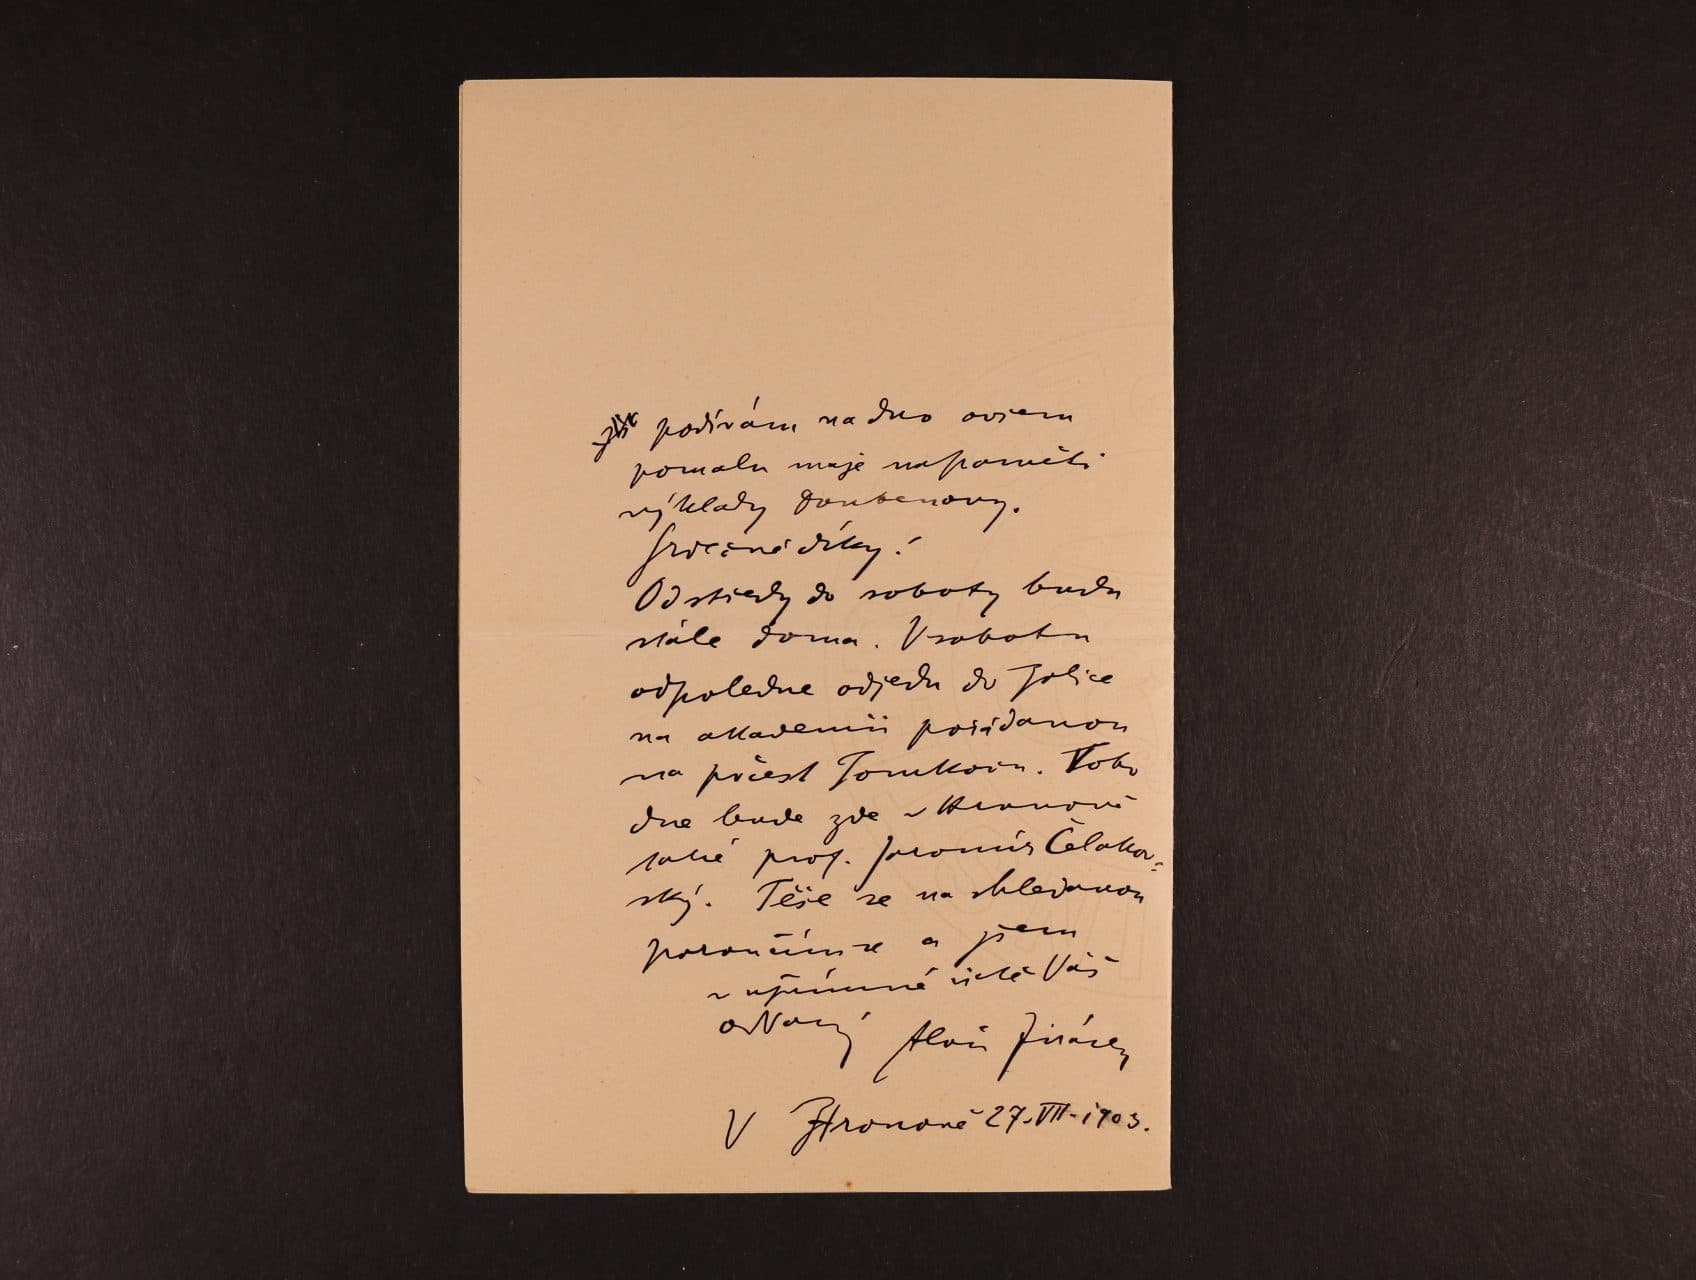 podívám na dno ovšem
pomalu maje na paměti
výklady Doubenovy.
Srdečné díky!
Od středy do soboty budu
stále doma. V sobotu
odpoledne odjedu do Police
na akademii pořádanou
na počest Tomkovu. Toho
dne bude zde v Hronově
také prof. Jaromír Čelakov-
ský. Těše se na shledanou
poroučím se a jsem
v upřímné úctě Váš
oddaný Alois Jirásek
V Hronově 27. VII. 1903.